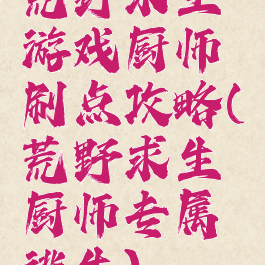 荒野求生
游戏厨师
刷点攻略(
荒野求生
厨师专属